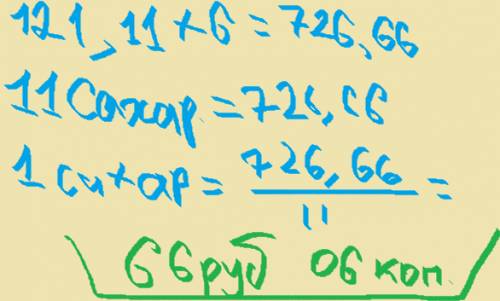 121,11 + 6 = 726,66
11 Сахар = 726,66
1 сахар = 726,66 / 11 =
66 руб 06 коп.